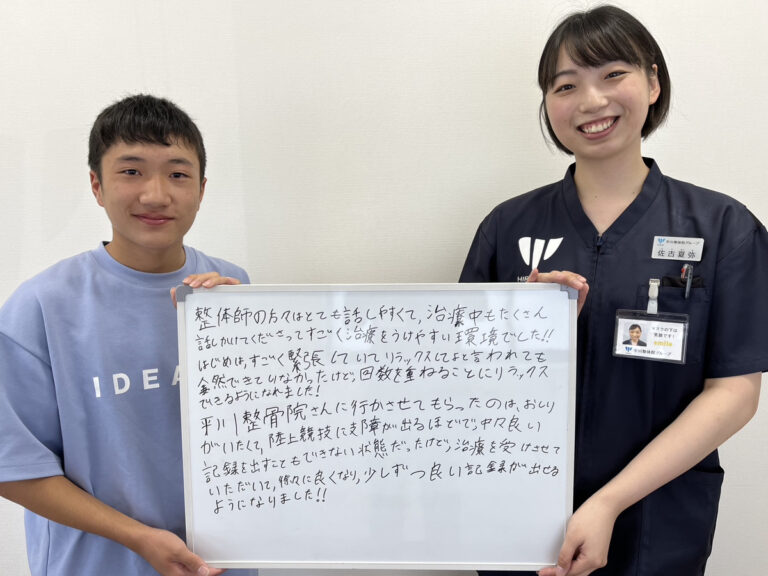 整体師の方々はとても話しやすくて、治療中もたくさん
話しかけてくださってすごく治療をうけやすい環境でした!!
はじめは、すごく緊張していてリラックスしてよと言われても
全然できていなかったけど、回数を重ねるごとにリラックス
できるようになれました!
平川整骨院さんに行かさせてもらったのは、おしり
がいたくて、陸上競技に支障が出るほどで中々良い
記録を出すこともできない状態だったけど、治療を受けさせて
いただいて、徐々に良くなり、少しずつ良い記録が出せる
ようになりました!!
IDEA
HIR
平川整体院グループ
佐古夏弥
マスクの下は
笑顔です!
smile
平川整体院グループ